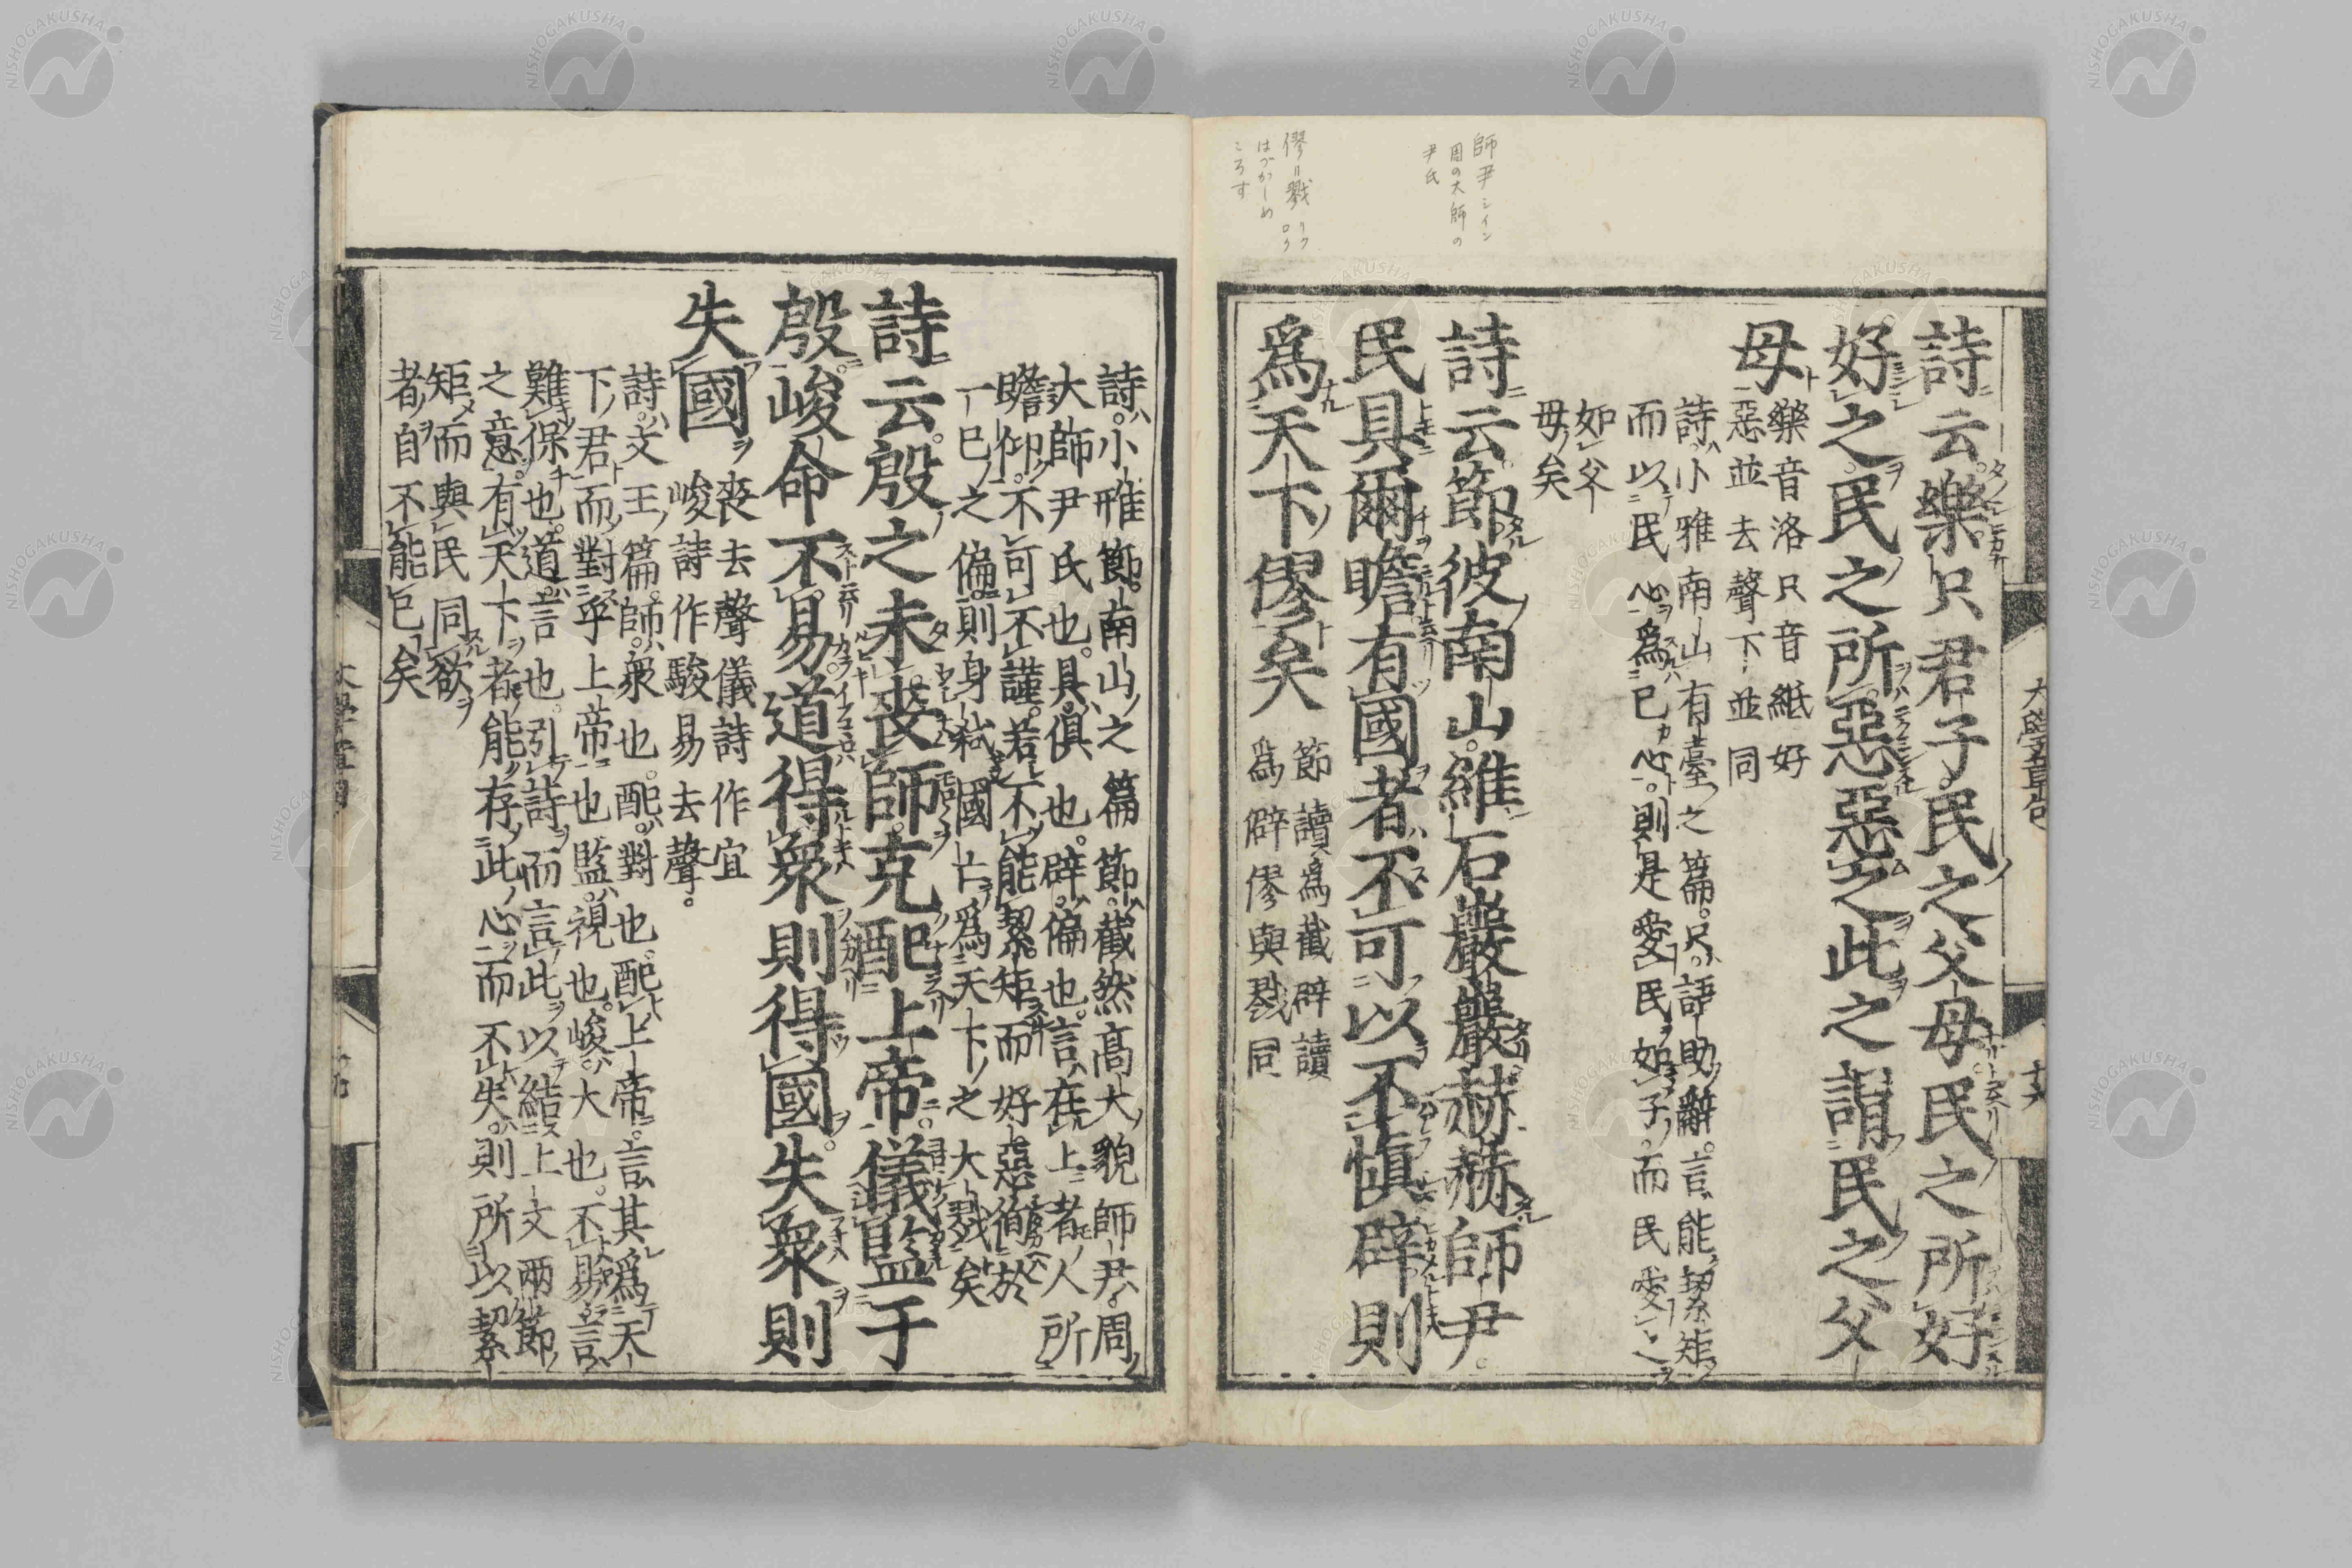 師尹シイン
周の大師の
尹氏
僇=戮 リク ロク
はづかしめ
ころす
大學章句
詩云樂只君子民之父母民之所好
好之民之所惡惡之此之謂民之父
母
樂音洛只音紙好
惡並去聲下並同
詩小雅南山有臺之篇只語助辭言能絜矩
而以民心爲已心則是愛民如子而民愛之
如父
母矣
詩云節彼南山維石巖巖赫赫師尹
民具爾瞻有國者不可以不愼辟則
爲天下僇矣
節讀爲截辟讀
爲僻僇與戮同
詩小雅節南山之篇節截然高大貌師尹周
大師尹氏也具俱也辟偏也言在上者人所
瞻仰不可不謹若不能絜矩而好惡徇於
一已之偏則身弑國亡爲天下之大戮矣
詩云殷之未喪師克配上帝儀監于
殷峻命不易道得衆則得國失衆則
失國
喪去聲儀詩作宜
峻詩作駿易去聲
詩文王篇師衆也配對也配上帝言其爲天
下君而對乎上帝也監視也峻大也不易言
難保也道言也引詩而言此以結上文兩節
之意有天下者能存此心而不失則所以絜
矩而與民同欲
者自不能已矣
大學章句
NISHOGAKUSHA